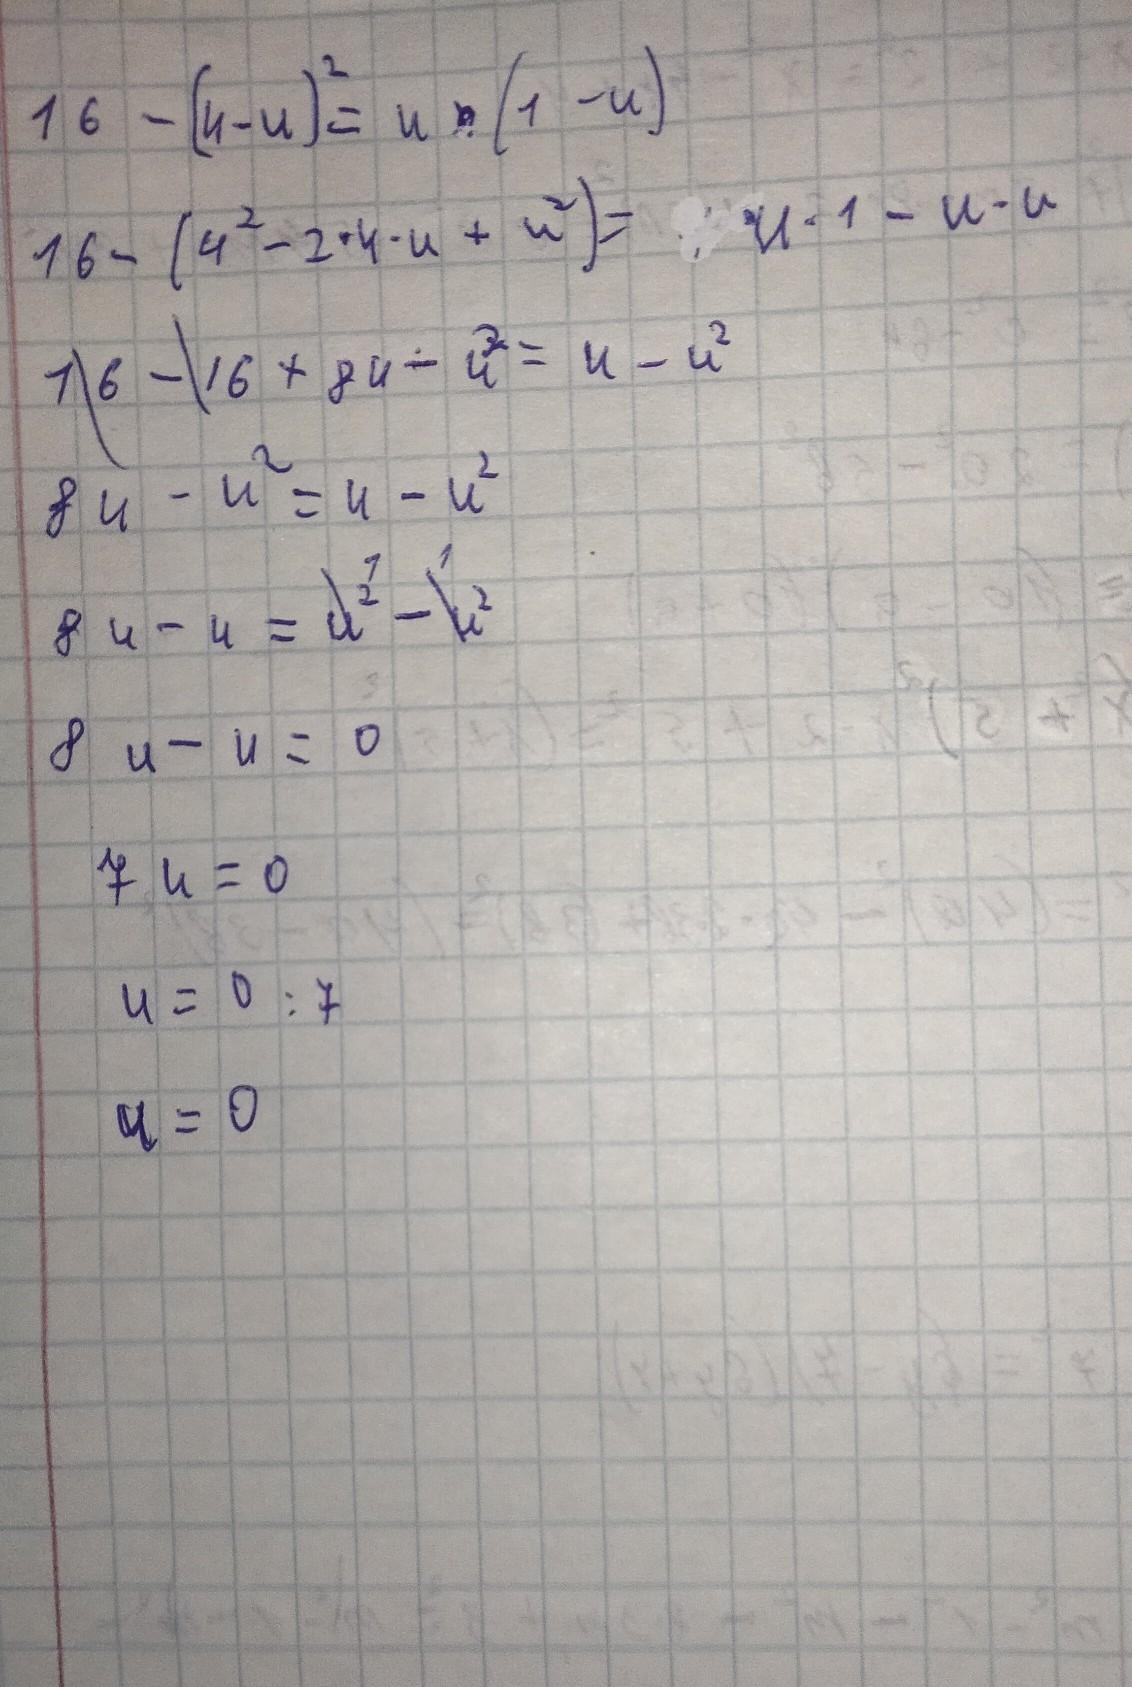 16 - (4-u)² = u · (1 - u)
16 - (4² - 2·4·u + u²) = u·1 - u·u
16 - 16 + 8u - u² = u - u²
8u - u² = u - u²
8u - u = u² - u²
8u - u = 0
7u = 0
u = 0 : 7
u = 0